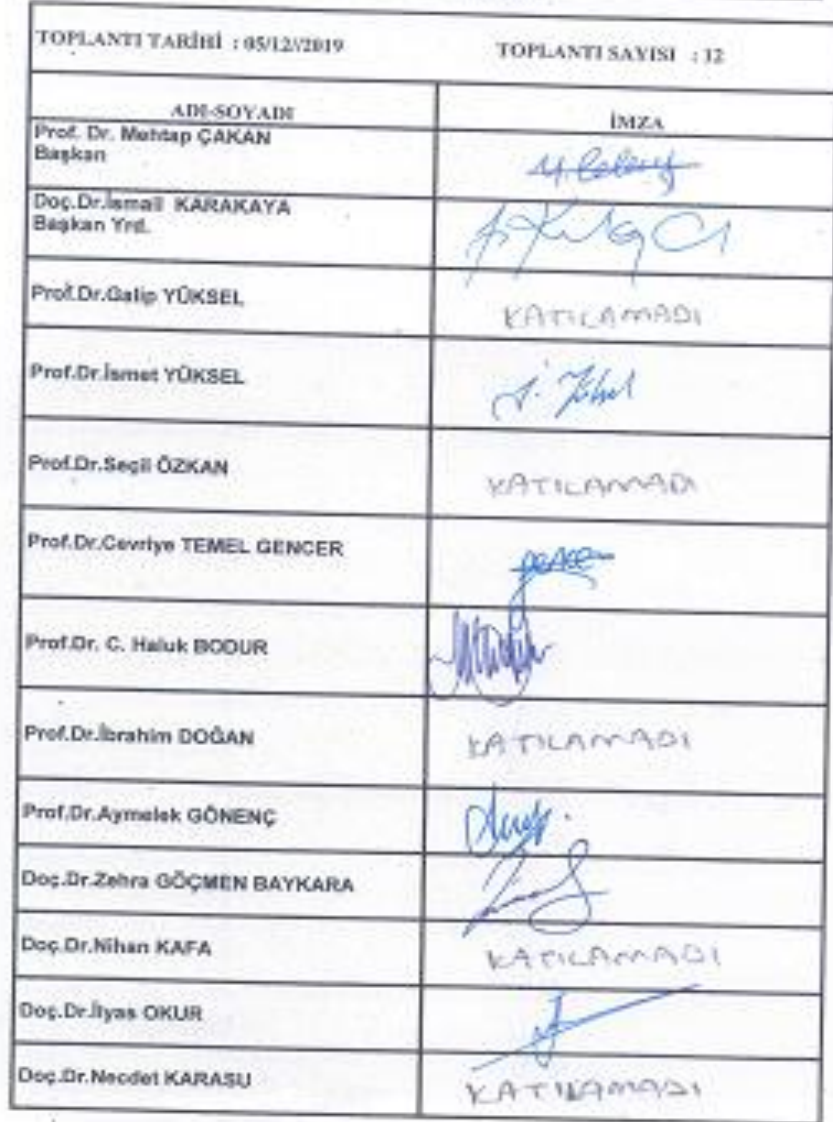 TOPLANTI TARİHİ : 05/12//2019 TOPLANTI SAYISI : 12
ADI-SOYADI İMZA
Prof. Dr. Mehtap ÇAKAN
Başkan
Doç.Dr.İsmail KARAKAYA
Başkan Yrd.
Prof.Dr.Galip YÜKSEL KATILAMADI
Prof.Dr.İsmet YÜKSEL
Prof.Dr.Seçil ÖZKAN KATILAMADI
Prof.Dr.Cevriye TEMEL GENCER
Prof.Dr. C. Haluk BODUR
Prof.Dr.İbrahim DOĞAN KATILAMADI
Prof.Dr.Aymelek GÖNENÇ
Doç.Dr.Zehra GÖÇMEN BAYKARA
Doç.Dr.Nihan KAFA KATILAMADI
Doç.Dr.İlyas OKUR
Doç.Dr.Necdet KARASU KATILAMADI